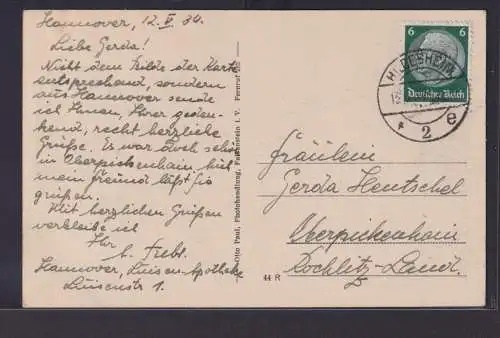 Hannover, 12. V. 34.
Liebe Gerda!
Nicht dem Bilde der Karte
entsprechend, sondern
aus Hannover sende
ich Ihnen, Ihrer geden-
kend, recht herzliche
Grüße. Es war doch schön
in Oberpickenhain, hie
mein Freund läßt Sie
grüßen.
Mit herzlichen Grüßen
verbleibe ich
Ihr
Hannover, Luisen-Apotheke
Luisenstr 1.
Otto Paul, Photohandlung, Falkenstein i. V. Fernruf
44 R
6 6
Deutsches Reich
HILDESHEIM
* 2 e
Fräulein
Gerda Hentschel
Oberpickenhain
Rochlitz-Land.